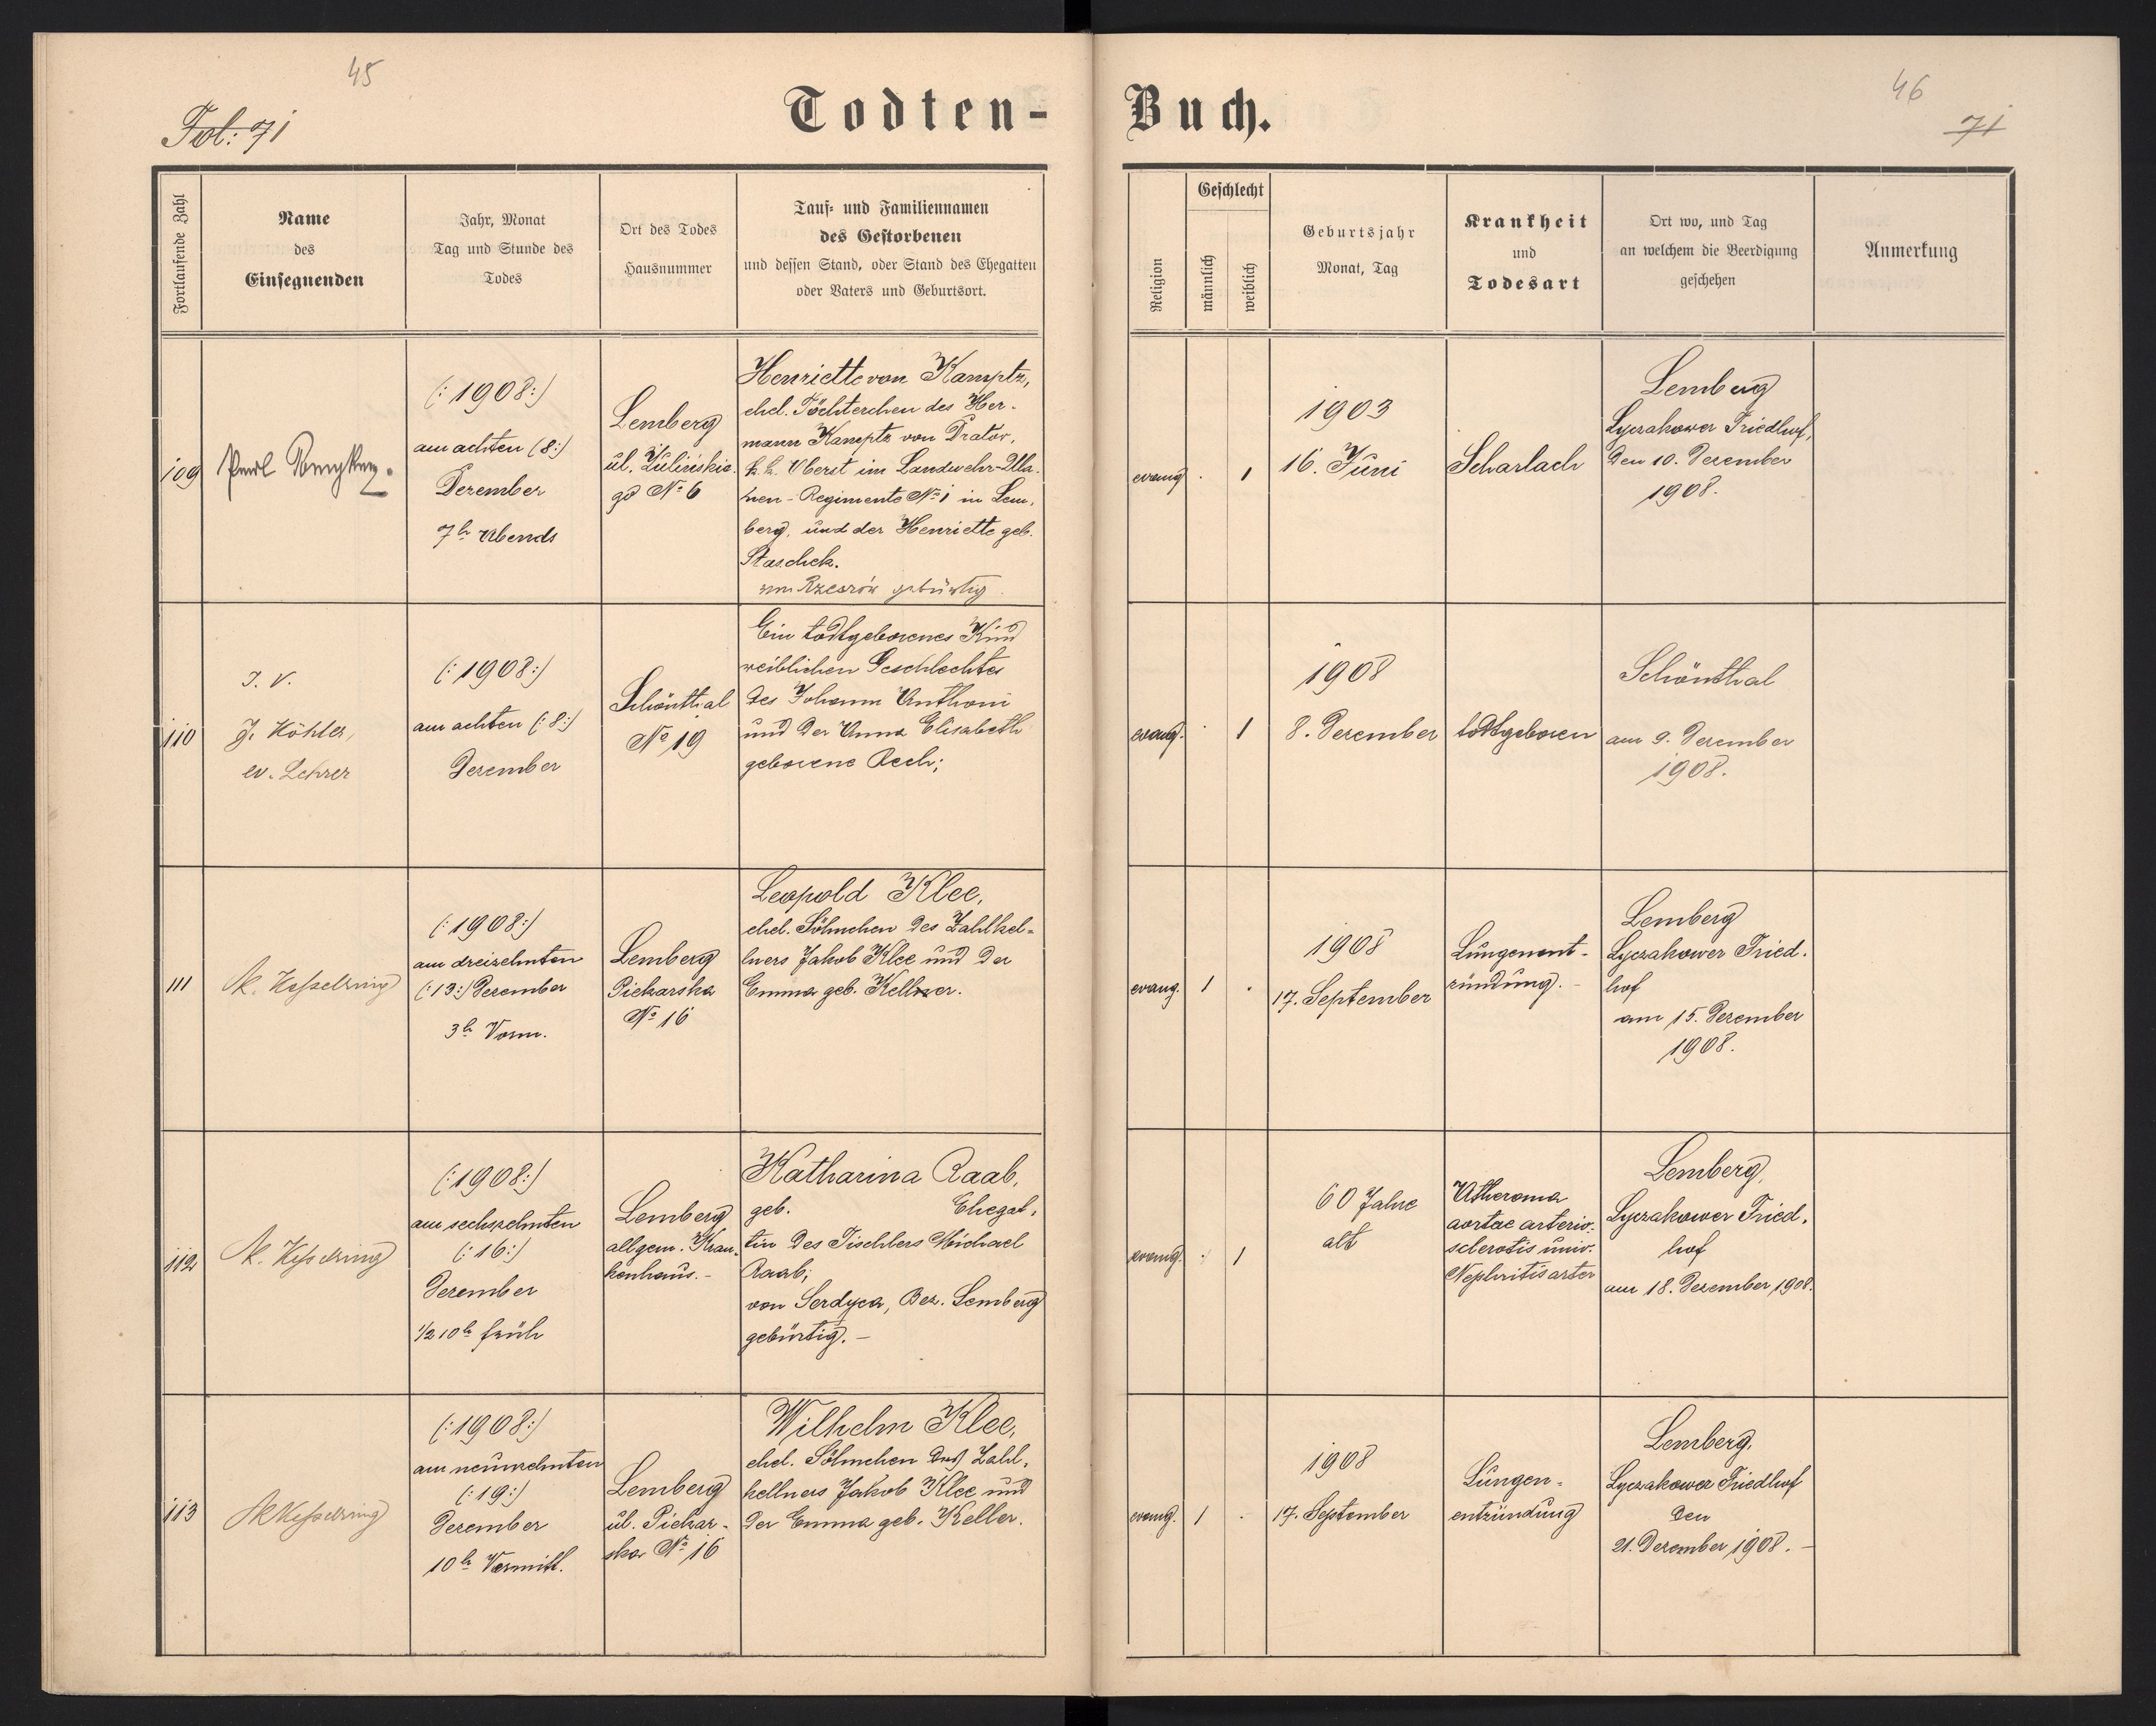 45
Fol: 71
Todten-
Buch.
46
71
Fortlaufende Zahl
Name
des
Einsegnenden
Jahr, Monat
Tag und Stunde des
Todes
Ort des Todes
Hausnummer
Tauf- und Familiennamen
des Gestorbenen
und dessen Stand, oder Stand des Ehegatten
oder Vaters und Geburtsort.
Religion
Geschlecht
männlich
weiblich
Geburtsjahr
Monat, Tag
Krankheit
und
Todesart
Ort wo, und Tag
an welchem die Beerdigung
geschehen
Anmerkung
109
Paul
(:1908:)
am achten (8:)
Dezember
7h Abends
Lemberg
ul. Zulińskie-
go No 6
Henriette von Kamptz,
ehel. Töchterchen des Her-
mann Kamptz von Drator,
k. k. Oberst im Landwehr-Ula-
nen-Regimente No 1 in Lem-
berg, und der Henriette geb.
Staschek.
von Rzeszów gebürtig.
evang
.
1
1903
16. Juni
Scharlach
Lemberg
Lyczakower Friedhof,
Den 10. Dezember
1908.
110
I. V.
J. Köhler,
ev. Lehrer
(:1908:)
am achten (:8:)
Dezember
Schönthal
No 19
Ein todtgeborenes Kind
weiblichen Geschlechtes
des Johann Anthoni
und der Anna Elisabeth
geborene Rech;
evang.
1
1908
8. Dezember
todtgeboren
Schönthal
am 9. Dezember
1908.
111
M. Kesselring
(:1908:)
am dreizehnten
(:13:) Dezember
3h Vorm.
Lemberg
Piekarska
No 16
Leopold Klee,
ehel. Söhnchen des Zahlkel-
lners Jakob Klee und der
Emma geb. Keller.
evang.
1
.
1908
17. September
Lungenent-
zündung. -
Lemberg
Lyczakower Fried-
hof
am 15. Dezember
1908.
112
M. Kesselring
(:1908:)
am sechszehnten
(:16:)
Dezember
1/2 10h früh
Lemberg
allgem. Kran-
kenhaus. -
Katharina Raab,
geb. Ehegat-
tin des Tischlers Michael
Raab;
von Serdyca, Bez. Lemberg
gebürtig. -
evang.
.
1
60 Jahre
alt
Atheroma
aortae arterio-
sclerotis univ.
Nephritis arter
Lemberg,
Lyczakower Fried-
hof
am 18. Dezember 1908.
113
M Kesselring
(:1908:)
am neunzehnten
(:19:)
Dezember
10h Vormitt.
Lemberg
ul. Piekar-
ska No 16
Wilhelm Klee,
ehel. Söhnchen des Zahl-
kellners Jakob Klee und
der Emma geb. Keller.
evang.
1
.
1908
17. September
Lungen-
entzündung
Lemberg,
Lyczakower Friedhof
den
21. Dezember 1908. -